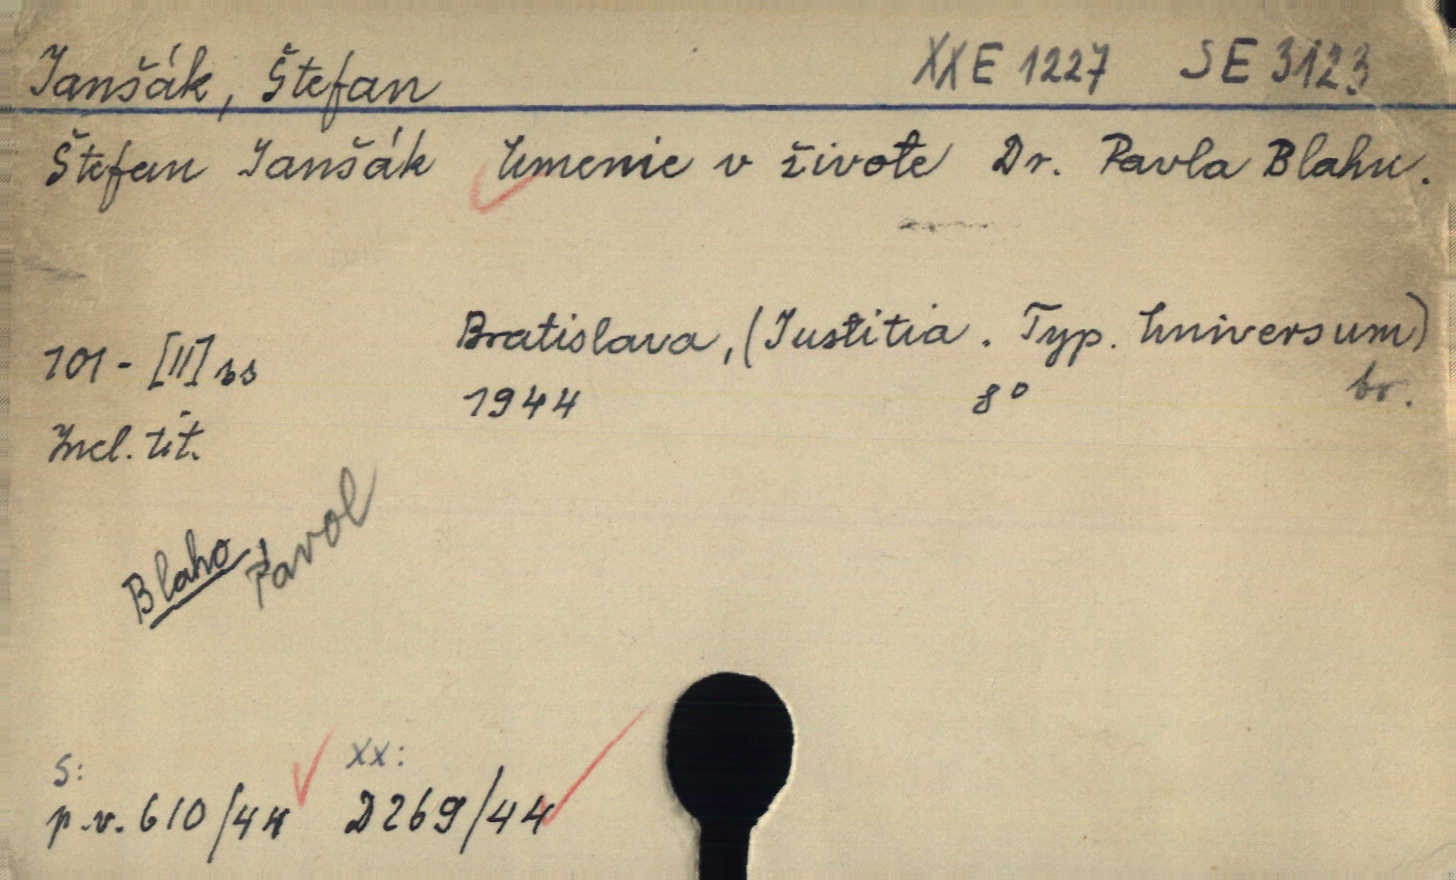 Janšák, Štefan XXE 1227 SE 3123
Štefan Janšák Umenie v živote Dr. Pavla Blahu.
Bratislava, (Iustitia. Typ. Universum)
101 - [II] ss
1944 8° br.
Incl. tit.
Blaho Pavol
S: XX:
p.v. 610/44 D269/44